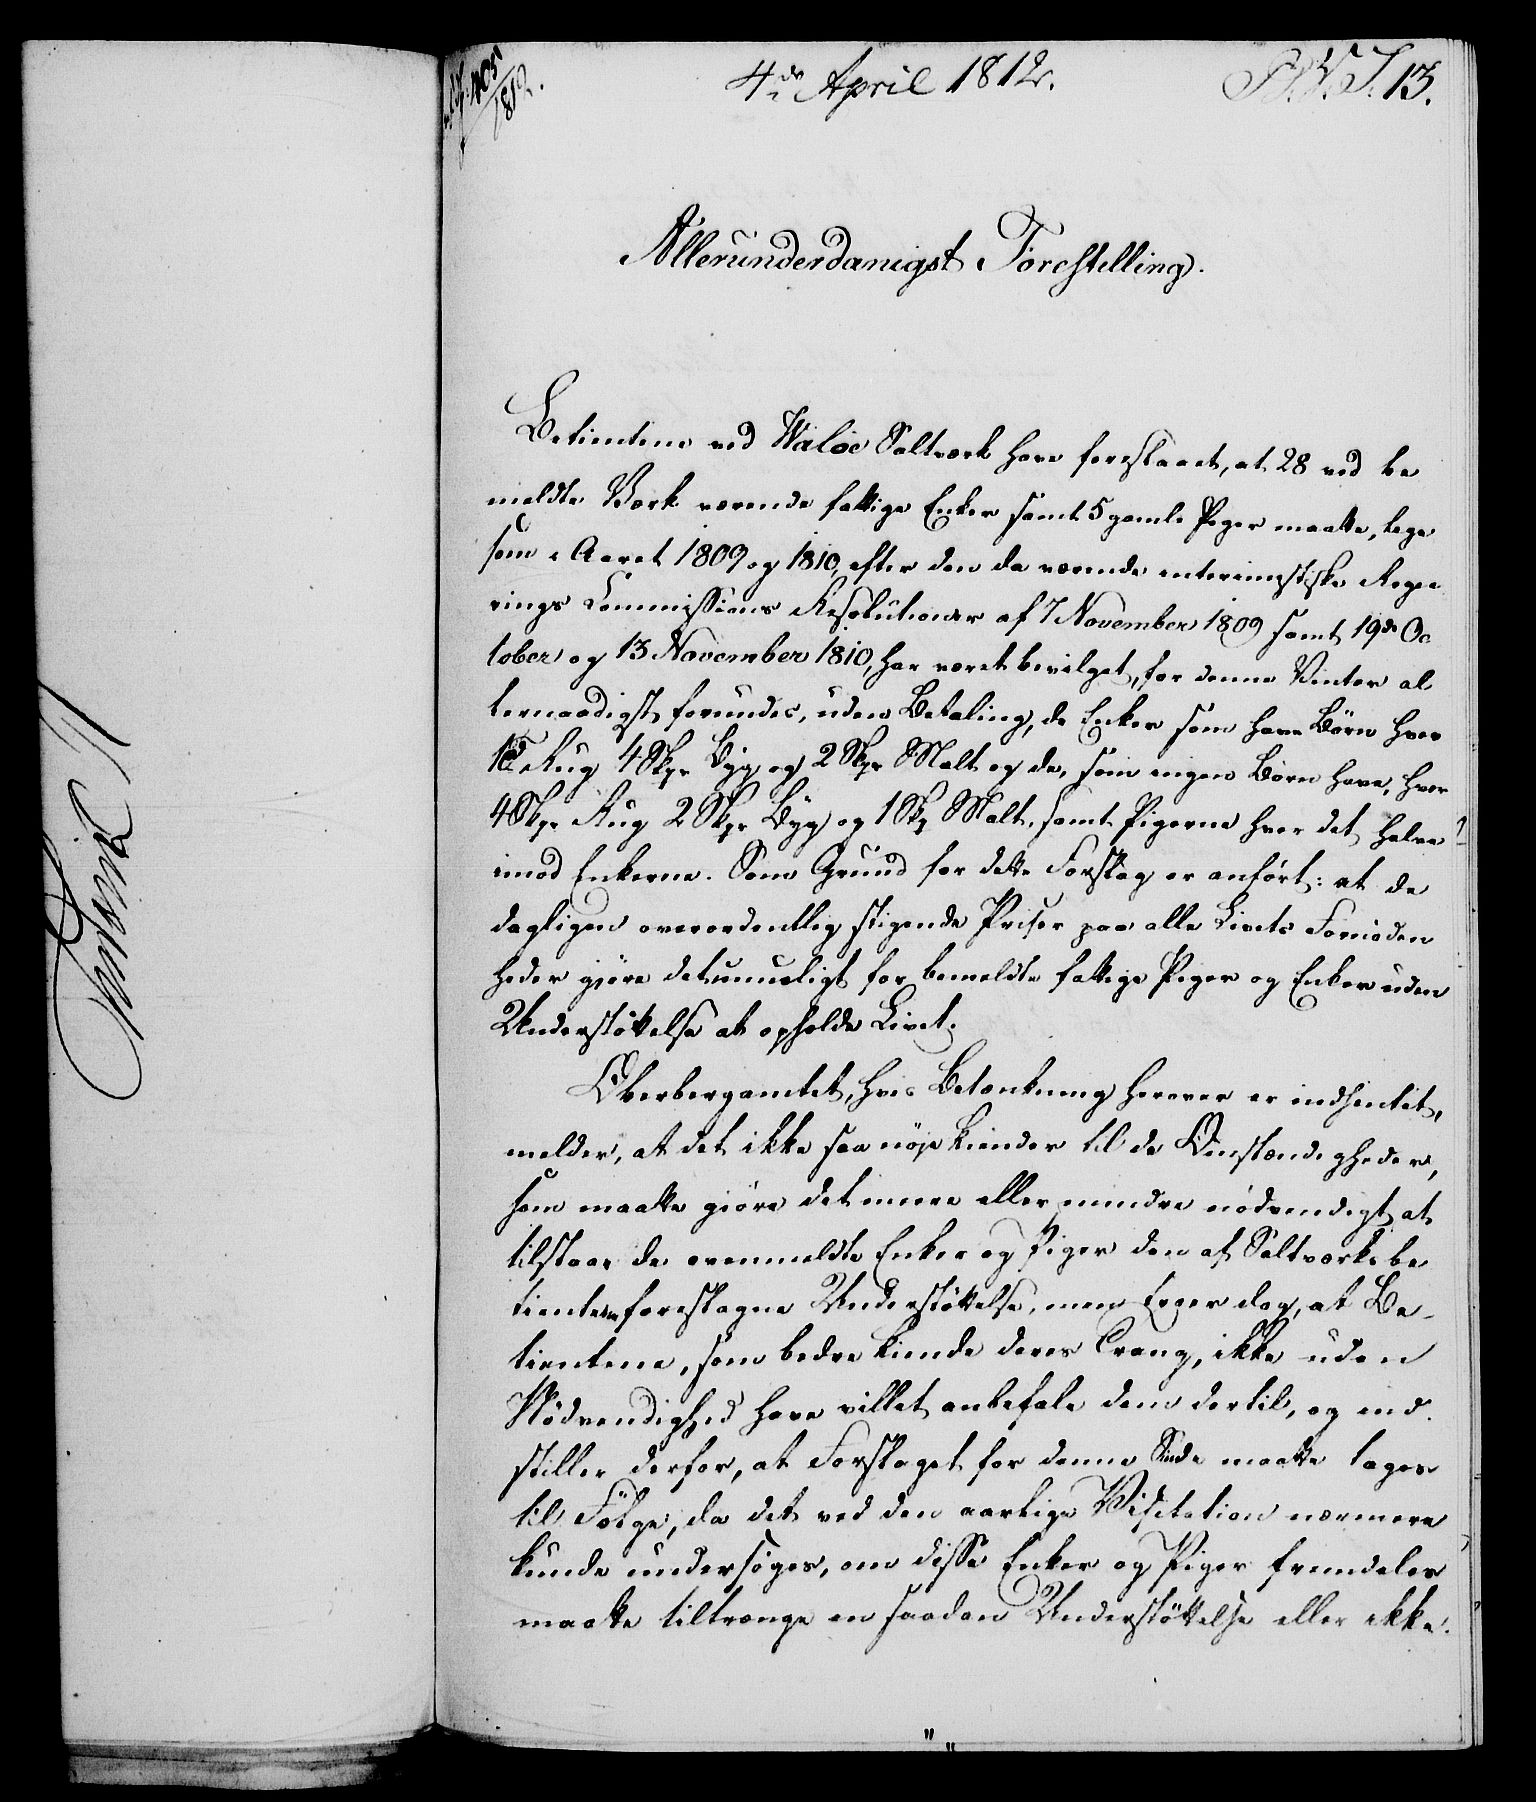 405
1812.
4de April 1812.
13.
Allerunderdanigst Forestilling.
Betientene ved Waløe Saltværk have foreslaaet, at 28 ved be
meldte Værk værende fattige Enker samt 5 gamle Piger maatte, lige
som i Aaret 1809 og 1810, efter den da værende interimistiske Rege
rings Commissions Resolutioner af 7 November 1809 samt 19de Oc
tober og 13 November 1810, har været bevilget, for denne Vinter al
lernaadigst forundes, uden Betaling, de Enker som have Børn hver
1 Rug 4 Skpr Byg og 2 Skpr Malt og de, som ingen Børn have, hver
4 Skpr Rug 2 Skpr Byg og 1 Skp Malt, samt Pigerne hver det halve
imod Enkerne. Som Grund for dette Forslag er anført: at de
dagligen overordentlig stigende Priser paa alle Livets Fornøden
heder gjøre det umueligt for bemeldte fattige Piger og Enker uden
Understøttelse at opholde Livet.
Oberbergamtet, hvis Betænkning herover er indhentet,
melder, at det ikke saa nøje kiender til de Omstændigheder,
som maatte giøre det mere eller mindre nødvendigt at
tilstaae de ovenmeldte Enker og Piger den af Saltværks be
tientene foreslagne Understøttelse, men troer dog, at Be-
tientene, som bedre kiende deres Trang, ikke uden
Nødvendighed have villet anbefale dem dertil, og ind
stiller derfor, at Forslaget for denne Sinde maatte tages
til Følge, da det ved den aarlige Visitation nærmere
kunde undersøges, om disse Enker og Piger fremdeles
maatte tiltrænge en saadan Understøttelse eller ikke.